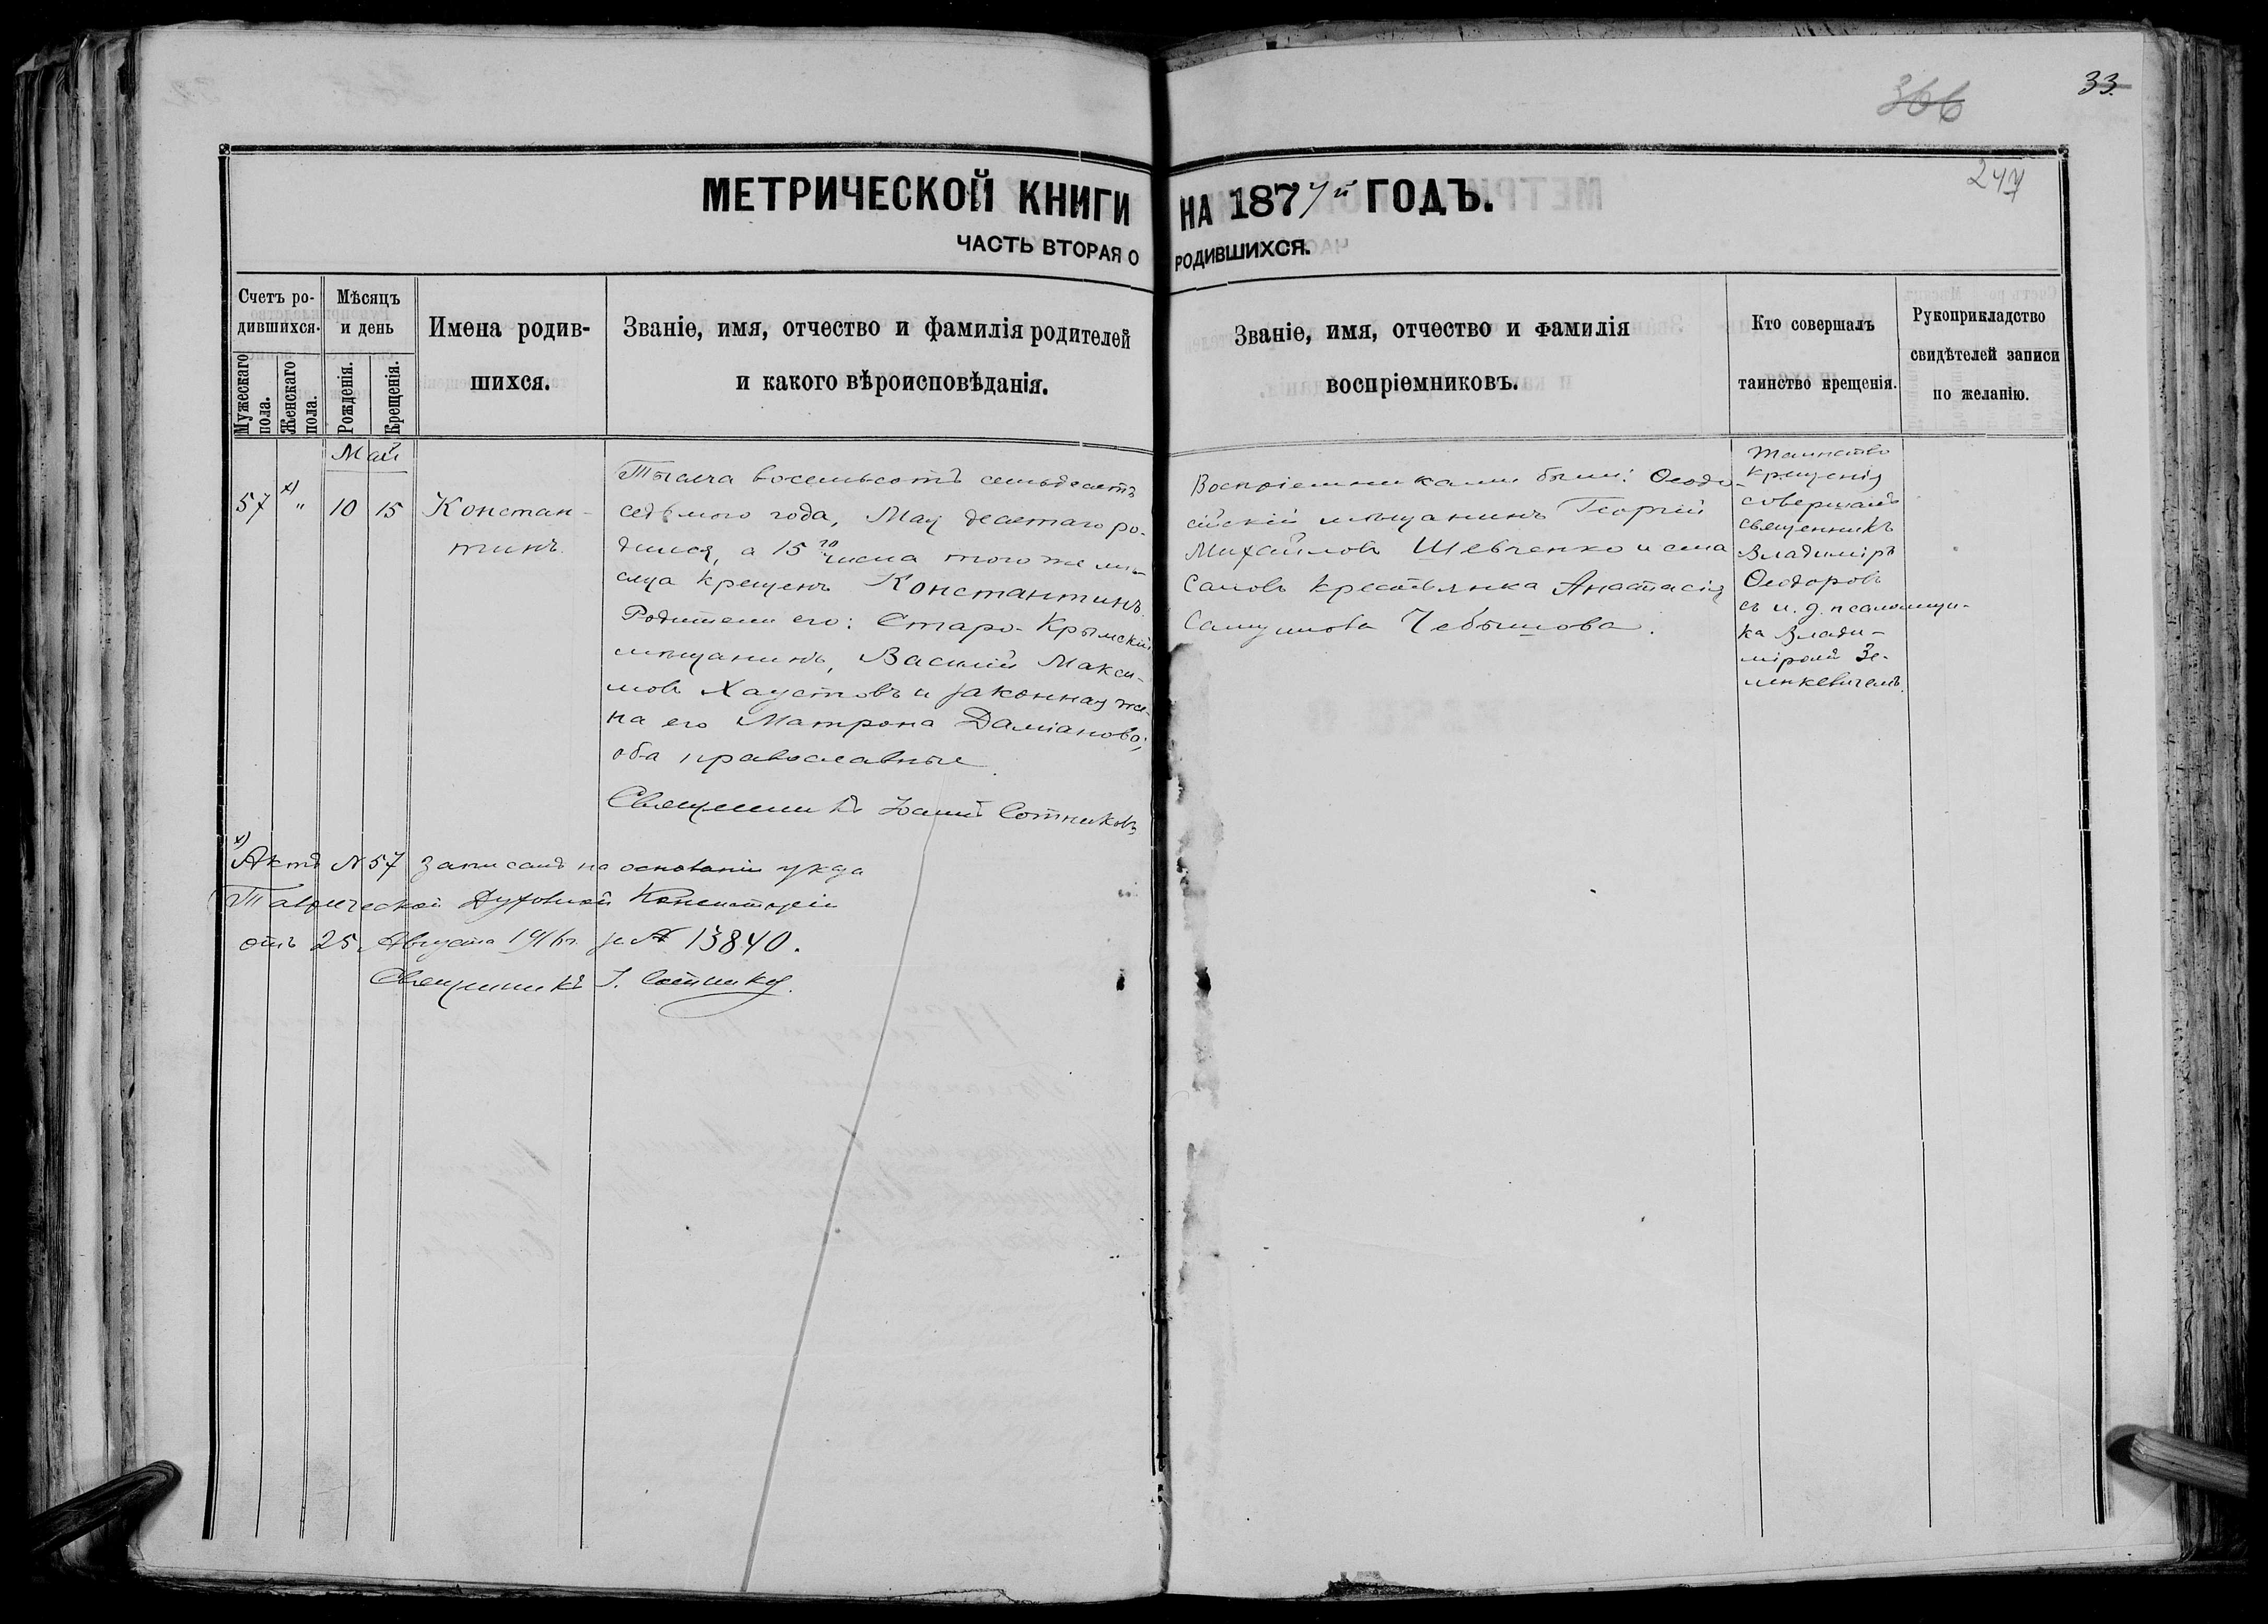 33.
366
247
МЕТРИЧЕСКОЙ КНИГИ НА 1877й ГОДЪ.
ЧАСТЬ ВТОРАЯ О РОДИВШИХСЯ.
Счетъ ро-
дившихся.
Мужескаго
пола.
Женскаго
пола.
Мѣсяцъ
и день
Рожденія.
Крещенія.
Имена родив-
шихся.
Званіе, имя, отчество и фамилія родителей
и какого вѣроисповѣданія.
Званіе, имя, отчество и фамилія
воспріемниковъ.
Кто совершалъ
таинство крещенія.
Рукоприкладство
свидѣтелей записи
по желанію.
Май
57 х) " 10 15
Констан-
тинъ.
Тысяча восемьсотъ семьдесятъ
седьмого года, Мая десятаго ро-
дился, а 15го числа того же мѣ-
сяца крещенъ Константинъ.
Родители его: Старо-Крымскій
мѣщанинъ, Василій Макси-
мовъ Хаустовъ и законная же-
на его Матрона Даміанова;
оба православные.
Священникъ Іоаннъ Сотниковъ
Воспріемниками были: Ѳеодо-
сійскій мѣщанинъ Георгій
Михайловъ Шевченко и
крестьянка Анастасія
Самуилова Чебышова.
Таинство
крещенія
совершалъ
священникъ
Владиміръ
Ѳеодоровъ
съ и. д. псаломщи-
ка Влади-
міромъ Зе-
линкевичемъ.
х)
Актъ № 57 записанъ на основаніи указа
Таврической Духовной Консисторіи
отъ 25 Августа 1916 г. за № 13840.
Священникъ І. Сотниковъ.